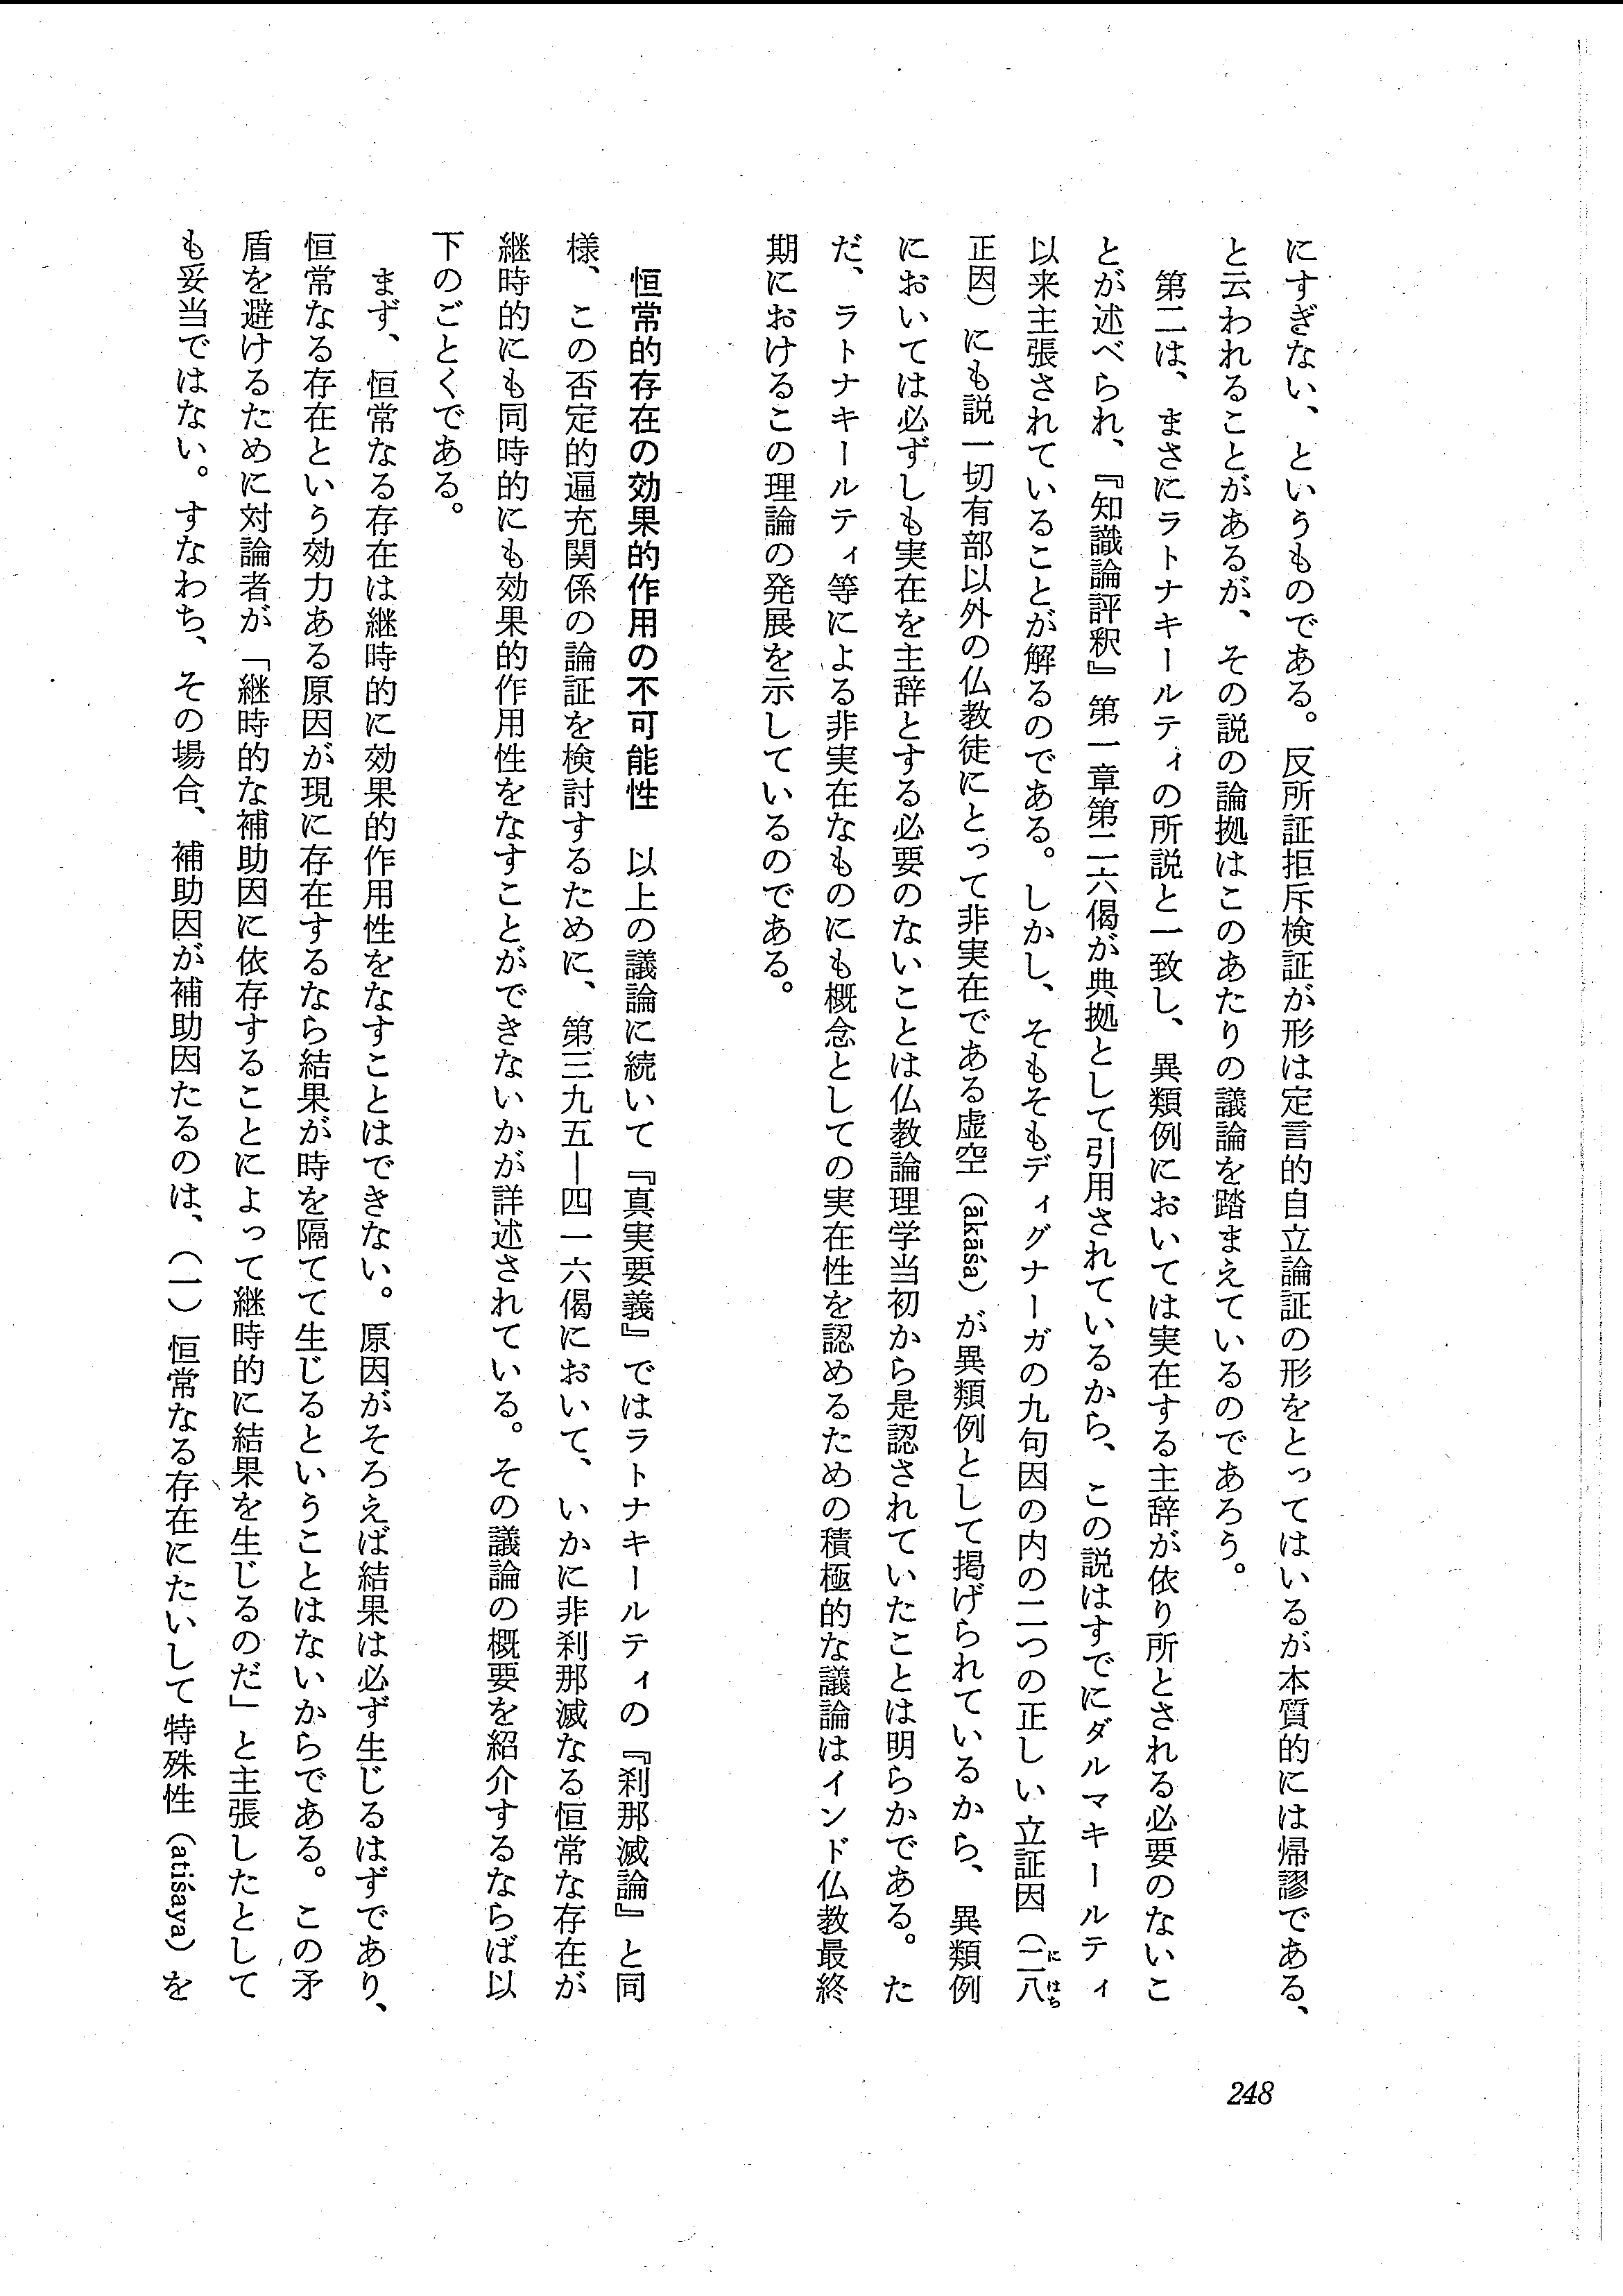 にすぎない、というものである。反所証拒斥検証が形は定言的自立論証の形をとってはいるが本質的には帰謬である、
と云われることがあるが、その説の論拠はこのあたりの議論を踏まえているのであろう。
第二は、まさにラトナキールティの所説と一致し、異類例においては実在する主辞が依り所とされる必要のないこ
とが述べられ、『知識論評釈』第一章第二六偈が典拠として引用されているから、この説はすでにダルマキールティ
以来主張されていることが解るのである。しかし、そもそもディグナーガの九句因の内の二つの正しい立証因（二八
にはち
正因）にも説一切有部以外の仏教徒にとって非実在である虚空（akāśa）が異類例として掲げられているから、異類例
においては必ずしも実在を主辞とする必要のないことは仏教論理学当初から是認されていたことは明らかである。た
だ、ラトナキールティ等による非実在なものにも概念としての実在性を認めるための積極的な議論はインド仏教最終
期におけるこの理論の発展を示しているのである。
恒常的存在の効果的作用の不可能性　以上の議論に続いて『真実要義』ではラトナキールティの『刹那滅論』と同
様、この否定的遍充関係の論証を検討するために、第三九五―四一六偈において、いかに非刹那滅なる恒常な存在が
継時的にも同時的にも効果的作用性をなすことができないかが詳述されている。その議論の概要を紹介するならば以
下のごとくである。
まず、恒常なる存在は継時的に効果的作用性をなすことはできない。原因がそろえば結果は必ず生じるはずであり、
恒常なる存在という効力ある原因が現に存在するなら結果が時を隔てて生じるということはないからである。この矛
盾を避けるために対論者が「継時的な補助因に依存することによって継時的に結果を生じるのだ」と主張したとして
も妥当ではない。すなわち、その場合、補助因が補助因たるのは、（一）恒常なる存在にたいして特殊性（atiśaya）を
248